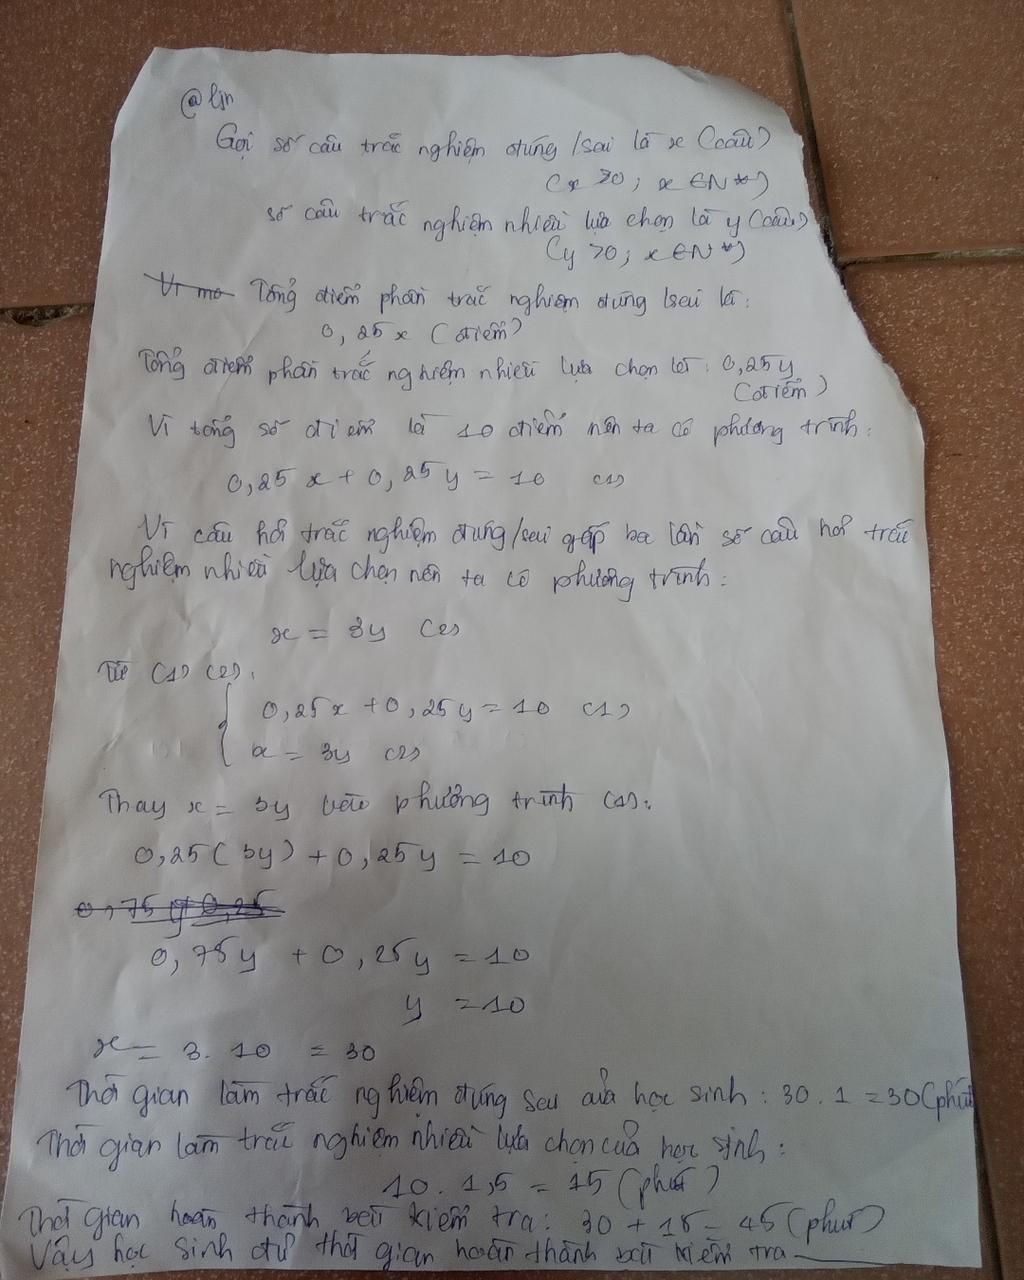 @ljn
Gọi số câu trắc nghiệm đúng/sai là x (câu)
(x >0; x ∈ N*)
số câu trắc nghiệm nhiều lựa chọn là y (câu)
(y >0; x ∈ N*)
Tổng điểm phần trắc nghiệm đúng/sai là:
0,25x (điểm)
Tổng điểm phần trắc nghiệm nhiều lựa chọn là: 0,25y
(điểm)
Vì tổng số điểm là 10 điểm nên ta có phương trình:
0,25x + 0,25y = 10 (1)
Vì câu hỏi trắc nghiệm đúng/sai gấp ba lần số câu hỏi trắc
nghiệm nhiều lựa chọn nên ta có phương trình:
x = 3y (2)
Từ (1) (2):
0,25x + 0,25y = 10 (1)
x = 3y (2)
Thay x = 3y vào phương trình (1):
0,25(3y) + 0,25y = 10
0,75y 0,25
0,75y + 0,25y = 10
y = 10
x = 3.10 = 30
Thời gian làm trắc nghiệm đúng sai của học sinh: 30.1 = 30 (phút
Thời gian làm trắc nghiệm nhiều lựa chọn của học sinh:
10.1,5 = 15 (phút)
Thời gian hoàn thành bài kiểm tra: 30 + 15 = 45 (phút)
Vậy học sinh đủ thời gian hoàn thành bài kiểm tra